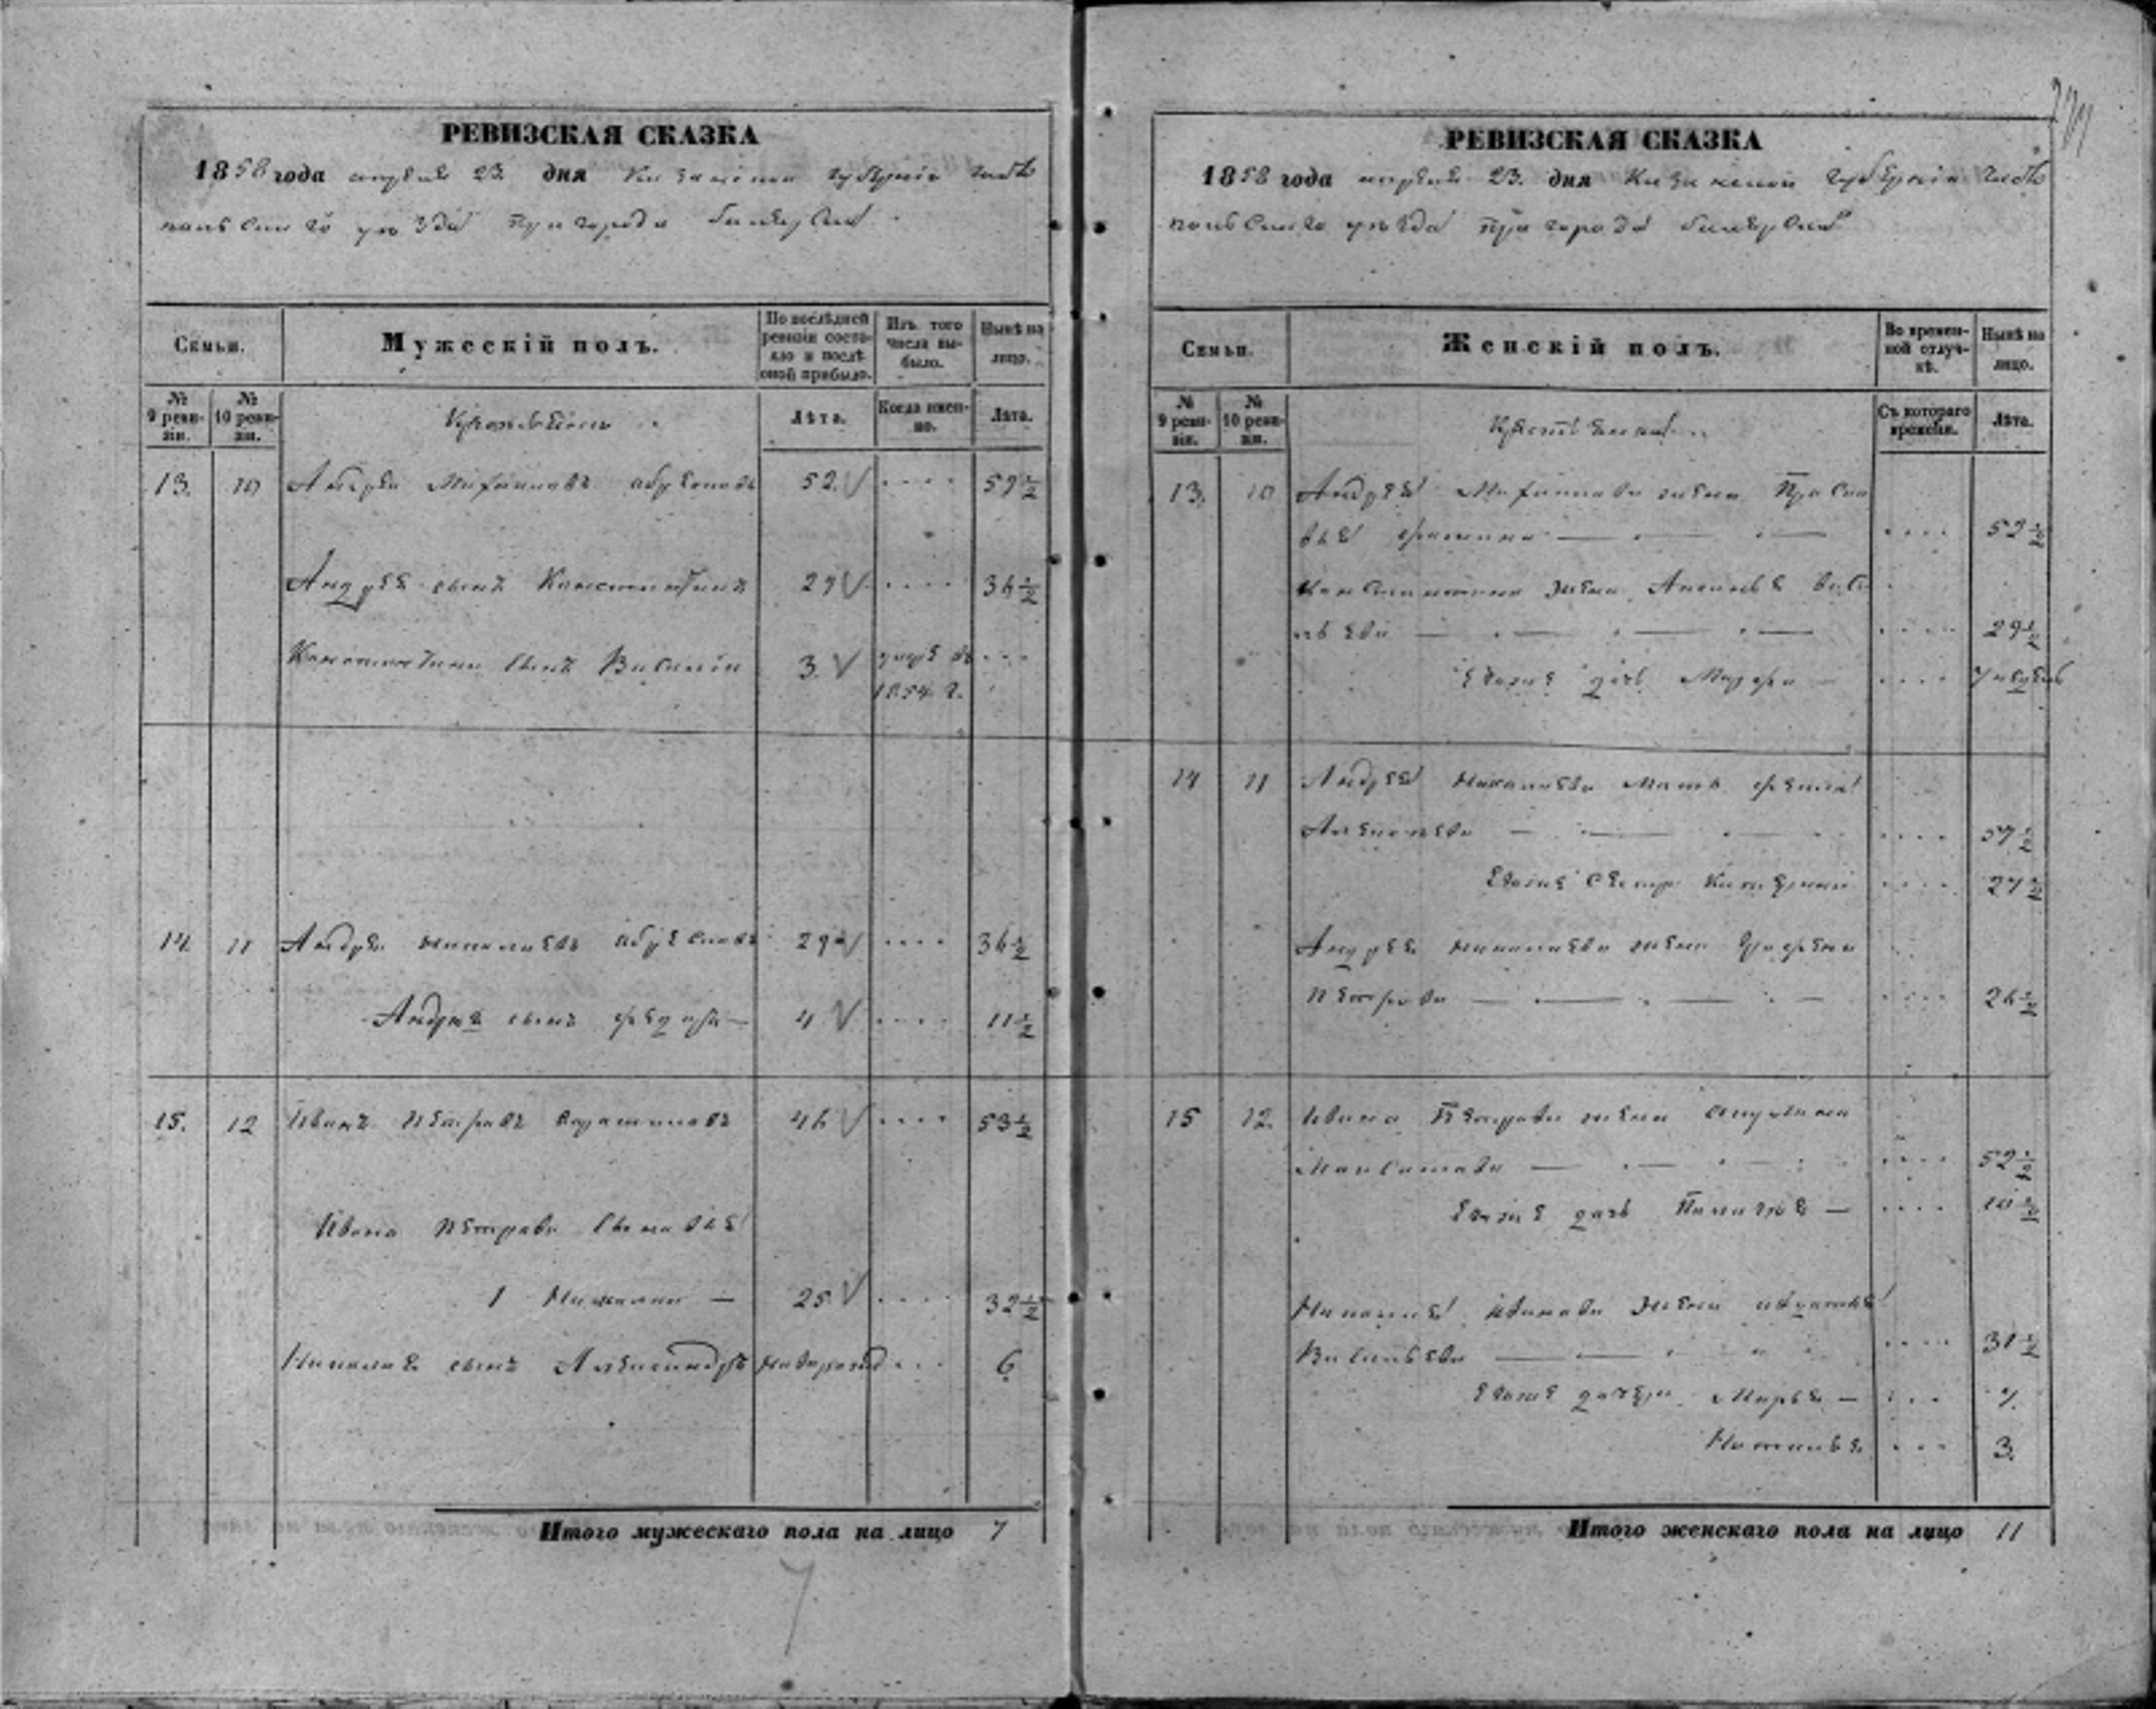 РЕВИЗСКАЯ СКАЗКА
1858 года апреля 23 дня Казанской губернiи Чисто
польскаго уѣзда пригорода Билярска
Семьи.
Мужескiй полъ.
По послѣдней ревизiи состояло и послѣ оной прибыло.
Изъ того числа выбыло.
Нынѣ на лицо.
№ 9 ревизiи.
№ 10 ревизiи.
Лѣта.
Когда именно.
Лѣта.
13. 10 Андрей Михайловъ 52 59 ½
Андрея сынъ Константинъ 29 36 ½
Константина сынъ Василiй 3. умре въ
1854 г.
14. 11 Андрей Николаевъ 29 36 ½
Андрея сынъ Федоръ — 4 11 ½
15. 12 Иванъ Петровъ 46 53 ½
Ивана Петрова сыновья
1 Николай — 25 32 ½
Николая сынъ Александръ новорожд 6
Итого мужескаго пола на лицо 7
7
РЕВИЗСКАЯ СКАЗКА
1858 года апреля 23. дня Казанской губернiи Чисто
польскаго уѣзда пригорода Билярска
Семьи.
Женскiй полъ.
Во временной отлучкѣ.
Нынѣ на лицо.
№ 9 ревизiи.
№ 10 ревизiи.
Съ котораго времени.
Лѣта.
13. 10 Андрея Михайлова жена Праско
вья 52 ½
Константина жена Васи
льева 29 ½
его дочь Марфа — 7 недель
14 11 Андрея Николаева мать
57 ½
его сестра Катерина 27 ½
Андрея Николаева жена
Петрова 26 ½
15 12. Ивана Петрова жена
Максимова 52 ½
его дочь Пелагея — 10 ½
Николая Иванова жена Авдотья
Васильева 31 ½
его дочери Марья — 7.
Наталья 3.
Итого женскаго пола на лицо 11